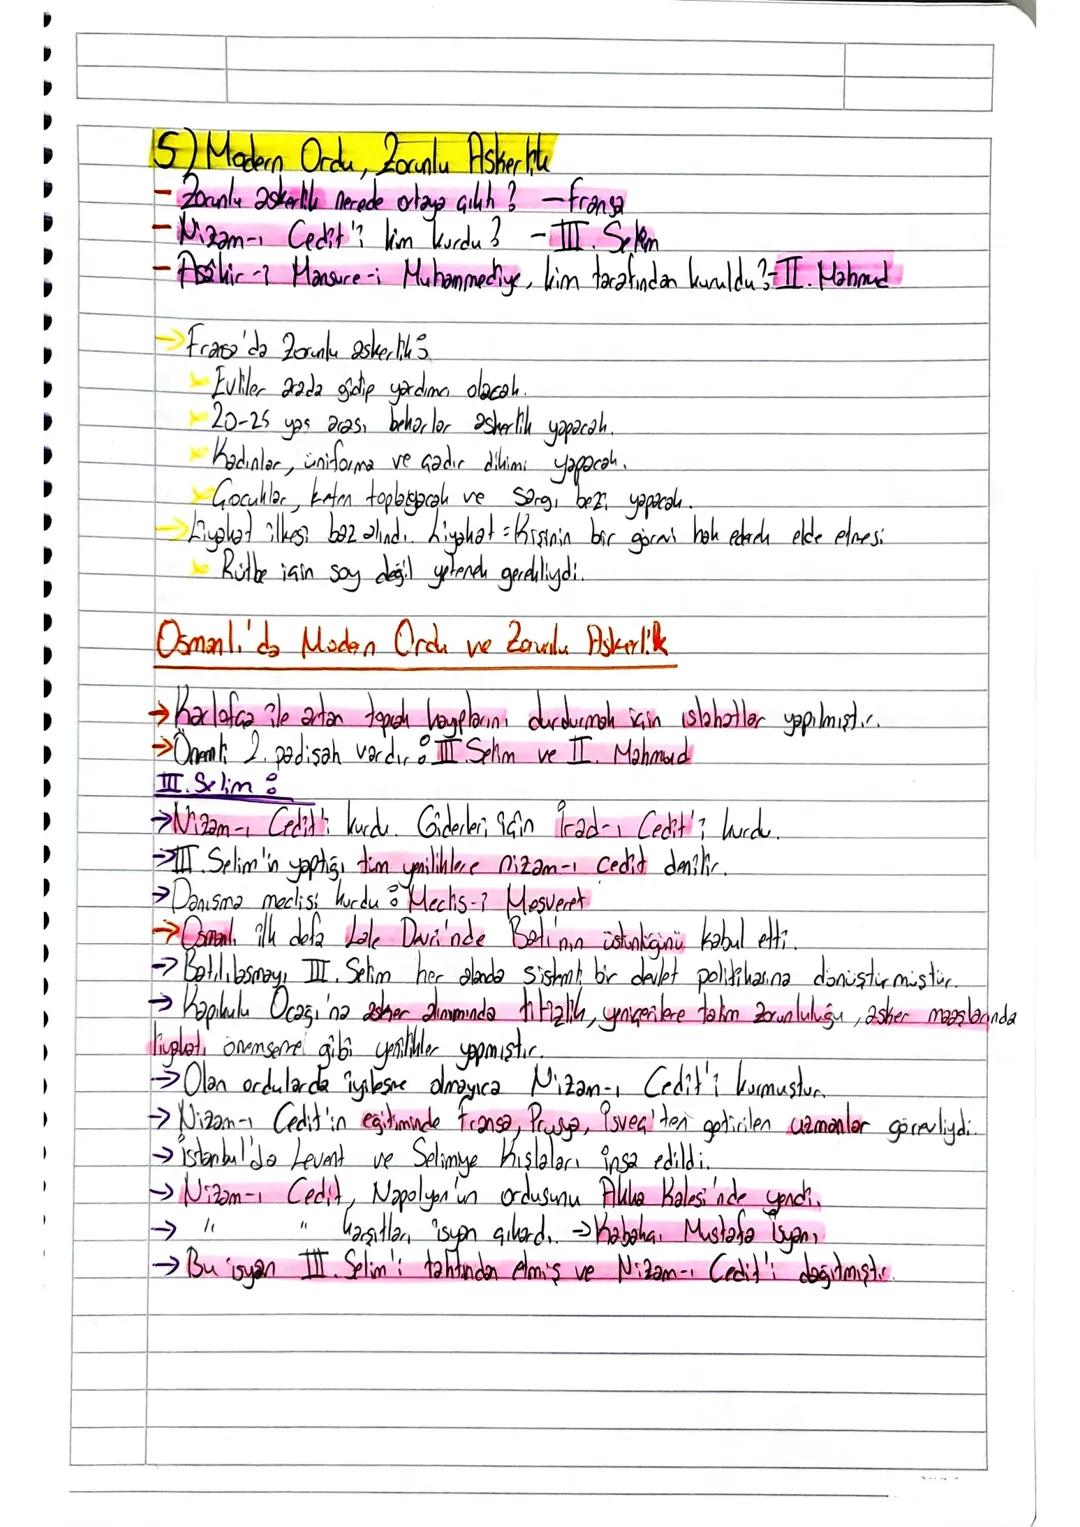 5) Modern Ordu, Zorunlu Askerlik
- Zorunlu askerlik nerede ortaya çıktı? - Fransa
- Nizam-ı Cedit'i kim kurdu? - III. Selim
- Asâkir-i Mansure-i Muhammediye, kim tarafından kuruldu? - II. Mahmud
→ Fransa'da Zorunlu askerlik:
Evliler arada gidip yardımcı olacak.
20-25 yaş arası bekarlar askerlik yapacak.
Kadınlar, üniforma ve çadır dikimi yapacak.
Çocuklar, keten toplayacak ve sargı bezi yapacak.
→ Liyakat ilkesi baz alındı. Liyakat = Kişinin bir görevi hak ederek elde etmesi
Rütbe için soy değil yetenek gerekliydi.
Osmanlı'da Modern Ordu ve Zorunlu Askerlik
→ Karlofça ile artan toprak kayıplarını durdurmak için ıslahatlar yapılmıştır.
→ Önemli 2. padişah vardır: III. Selim ve II. Mahmud
III. Selim:
→ Nizam-ı Cedit'i kurdu. Giderleri için İrad-ı Cedit'i kurdu.
→ III. Selim'in yaptığı tüm yeniliklere nizam-ı cedit denilir.
→ Danışma meclisi kurdu: Meclis-i Meşveret
→ Osmanlı ilk defa Lale Devri'nde Batı'nın üstünlüğünü kabul etti.
→ Batılılaşmayı III. Selim her alanda sistemli bir devlet politikasına dönüştürmüştür.
→ Kapıkulu Ocağı'na asker alımında titizlik, yeniçerilere talim zorunluluğu, asker maaşlarında
liyakatı önemseme gibi yenilikler yapmıştır.
→ Olan ordularda iyileşme olmayınca Nizam-ı Cedit'i kurmuştur.
→ Nizam-ı Cedit'in eğitiminde Fransa, Prusya, İsveç'ten getirilen uzmanlar görevliydi.
→ İstanbul'da Levent ve Selimiye Kışlaları inşa edildi.
→ Nizam-ı Cedit, Napolyon'un ordusunu Akka Kalesi'nde yendi.
→ " " karşıtları isyan çıkardı. → Kabakçı Mustafa İsyanı
→ Bu isyan III. Selim'i tahtından etmiş ve Nizam-ı Cedit'i dağıtmıştır.